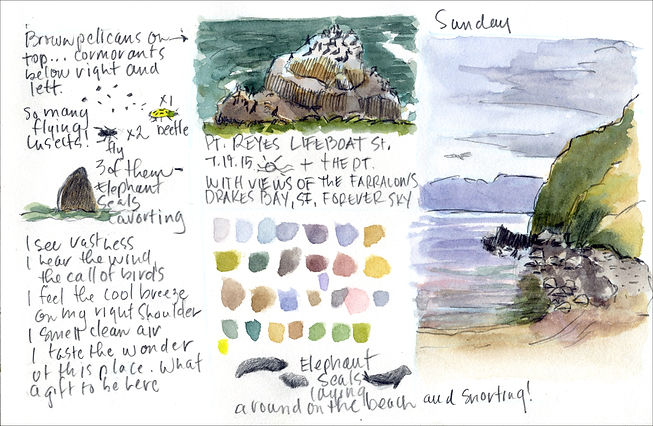 Brown pelicans on →
top... cormorants
below right and
left.
So many
flying
insects!
x1
beetle
x2
fly
3 of them –
Elephant
Seals
cavorting
I see vastness
I hear the wind,
the call of birds
I feel the cool breeze
on my right shoulder
I smell clean air
I taste the wonder
of this place. What
a gift to be here
PT. REYES LIFEBOAT ST.
7.19.15 + THE PT.
WITH VIEWS OF THE FARRALONS
DRAKES BAY, SF, FOREVER SKY
Elephant
Seals
laying
around on the beach and snorting!
Sunday